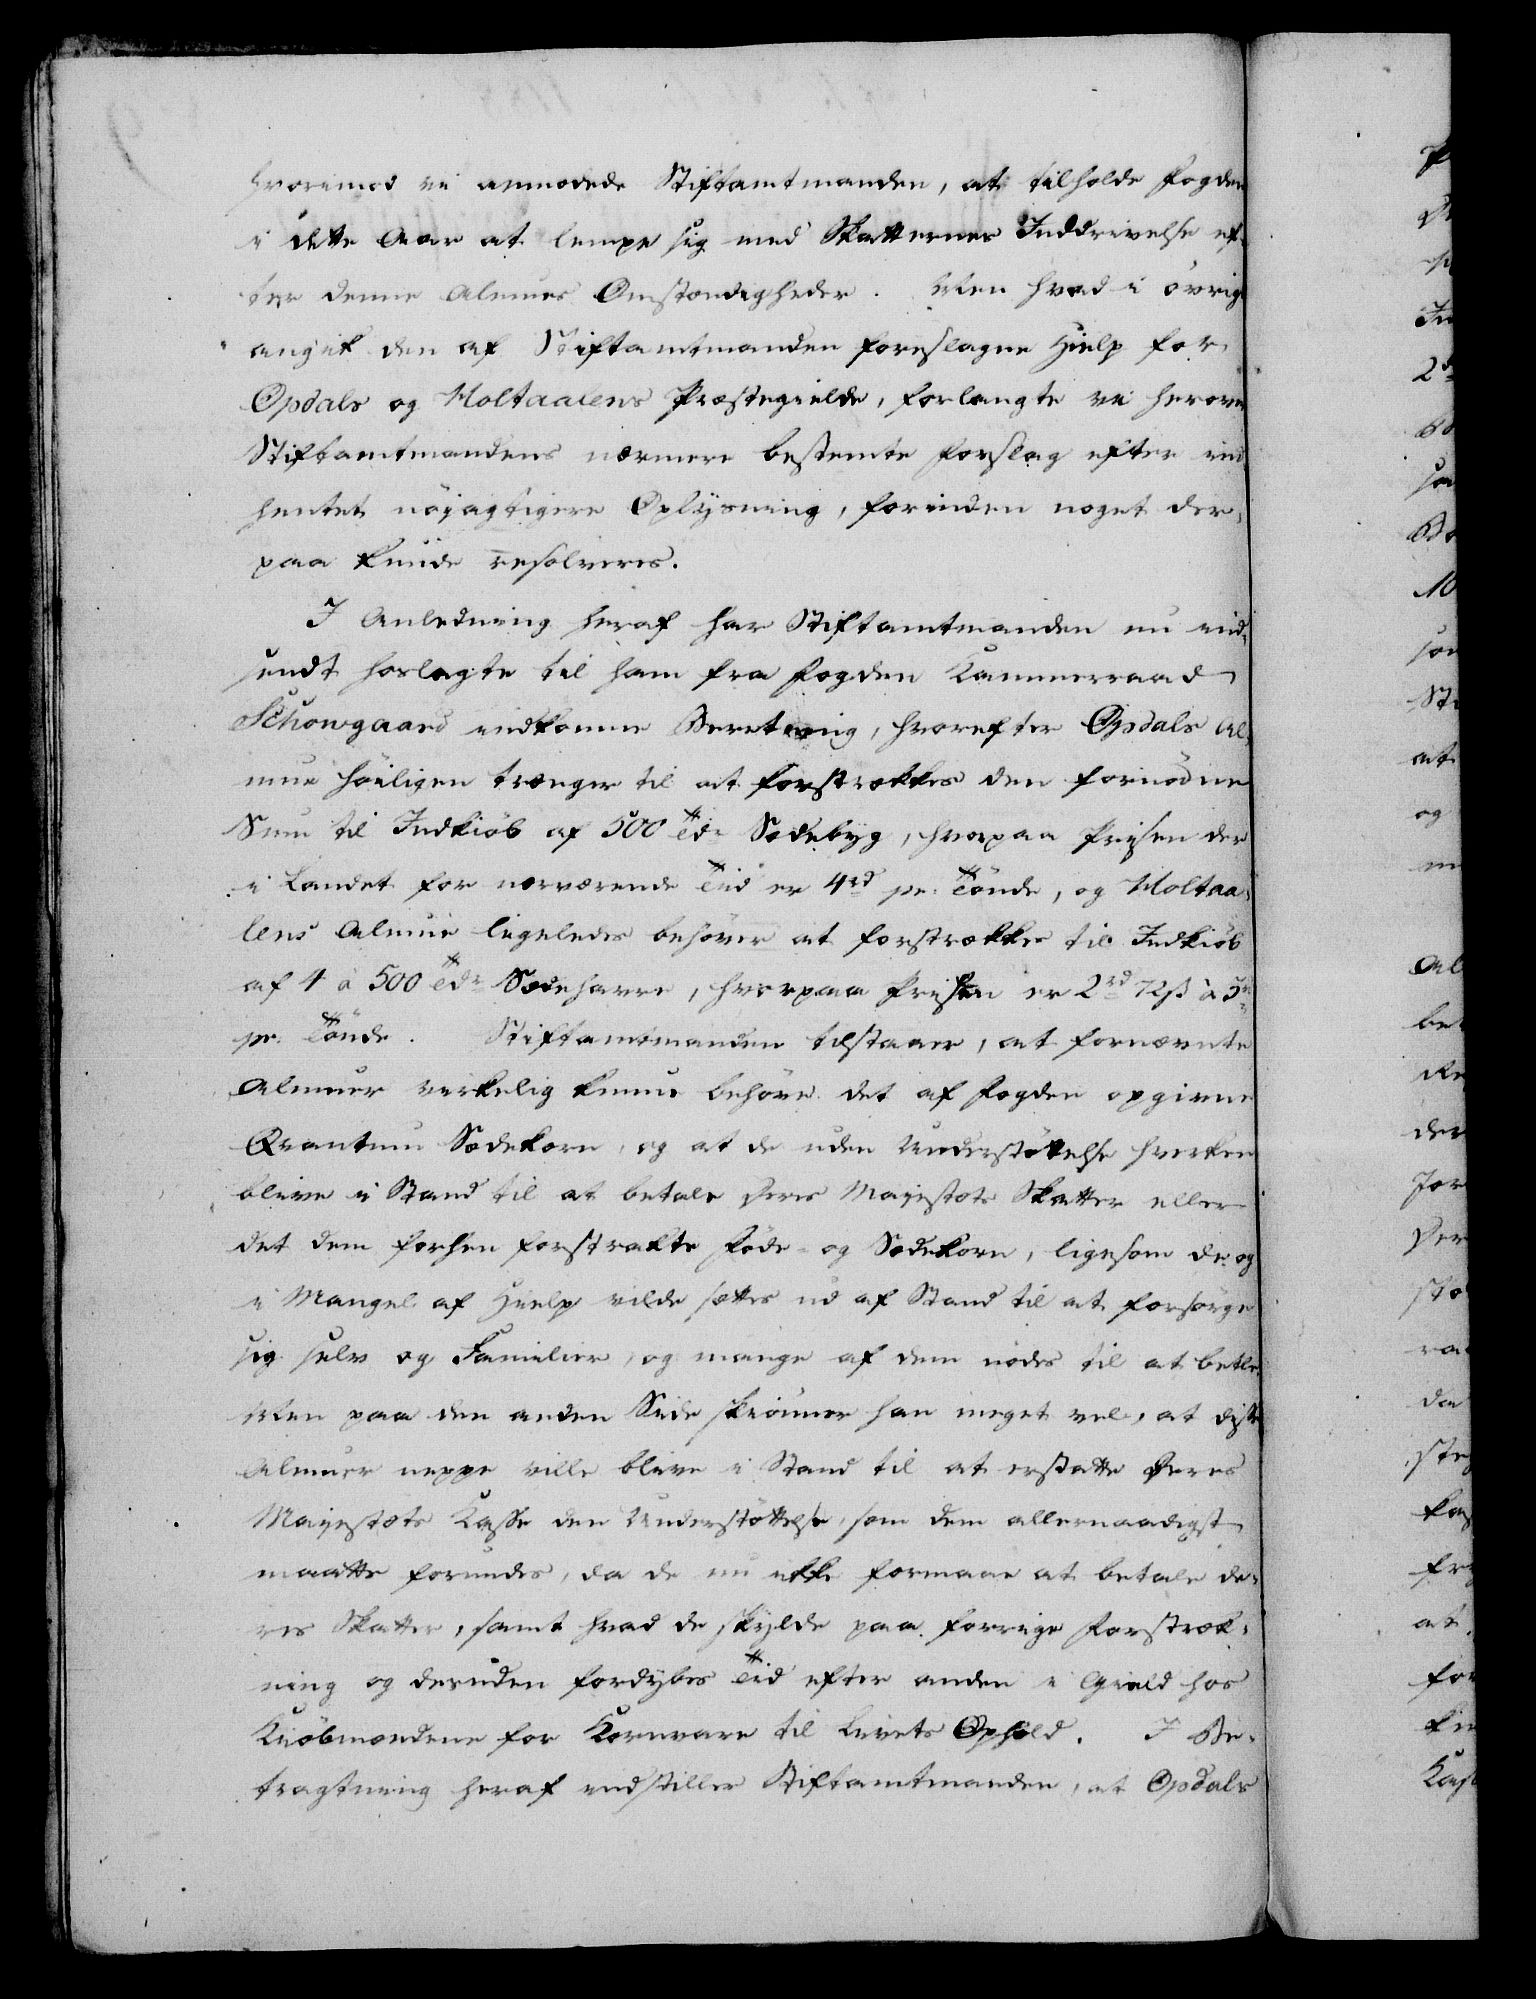 hvorimod vi anmodede Stiftamtmanden, at tilholde Fogden
i dette Aar at lempe sig med Skatternes Inddrivelse ef-
ter denne Almues Omstændigheder. Men hvad i øvrigt
angik den af Stiftamtmanden foreslagne Hielp for
Opdals og Holtaalens Præstegielde, forlangte vi herover
Stiftamtmandens nærmere bestemte Forslag efter ind-
hentet nöiagtigere Oplysning, forinden noget der-
paa kunde resolveres.
I Anledning heraf har Stiftamtmanden nu ind-
sendt hoslagte til ham fra Fogden Kammerraad
Schowgaard indkomne Beretning, hvorefter Opdals Al-
mue höiligen trænger til at forstrækkes den fornödne
Sum til Indkiöb af 500 Tdr Sædebyg, hvorpaa Prisen der
i Landet for nærværende Tiid er 4 rd pr. Tönde, og Holtaa-
lens Almue ligeledes behöver at forstrækkes til Indkiöb
af 4 à 500 Tdr Sædehavre, hvorpaa Prisen er 2 rd 72 ß à 3 rd
pr. Tönde. Stiftamtmanden tilstaaer, at fornævnte
Almuer virkelig kunne behöve det af Fogden opgivne
Qvantum Sædekorn, og at de uden Understöttelse hverken
blive i Stand til at betale Deres Majestæts Skatter eller
det dem forhen forstrakte Föde- og Sædekorn, ligesom de og
i Mangel af Hielp vilde sættes ud af Stand til at forsörge
sig selv og Familier, og mange af dem nödes til at betle.
Men paa den anden Side skiönner han meget vel, at disse
Almuer neppe ville blive i Stand til at erstatte Deres
Majestæts Kasse den Understöttelse, som dem allernaadigst
maatte forundes, da de nu ikke formaae at betale de-
res Skatter, samt hvad de skylde paa forrige Forstræk-
ning og desuden fordybes Tid efter anden i Gield hos
Kiöbmændene for Kornvare til Livets Ophold. I Be-
tragtning heraf indstiller Stiftamtmanden, at Opdals